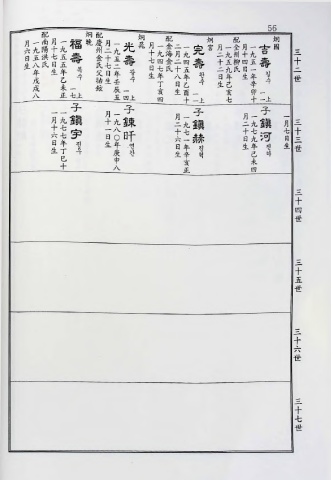 56
三十二世
三十三世
三十四世
三十五世
三十六世
三十七世
一月七日生
炳國
吉壽 길수
一九五一年辛卯十
月十四日生
配全州柳氏
一九五九年己亥七
月二十二日生
子鎭河 진하
一九七九年己未四
月二十日生
炳宮
完壽 완수
一九四五年乙酉十
二月二十八日生
配金海金氏
一九四七年丁亥四
月十七日生
子鎭赫 진혁
一九七一年辛亥正
月二十六日生
光壽 광수
一九五二年壬辰五
月二十七日生
配慶州金氏父喆鉉
子鍊旰 연간
一九八〇年庚申八
月十一日生
炳晩
福壽 복수
一九五五年乙未正
月十七日生
配南陽洪氏
一九五八年戊戌八
月六日生
子鎭宇 진우
一九七七年丁巳十
一月十六日生